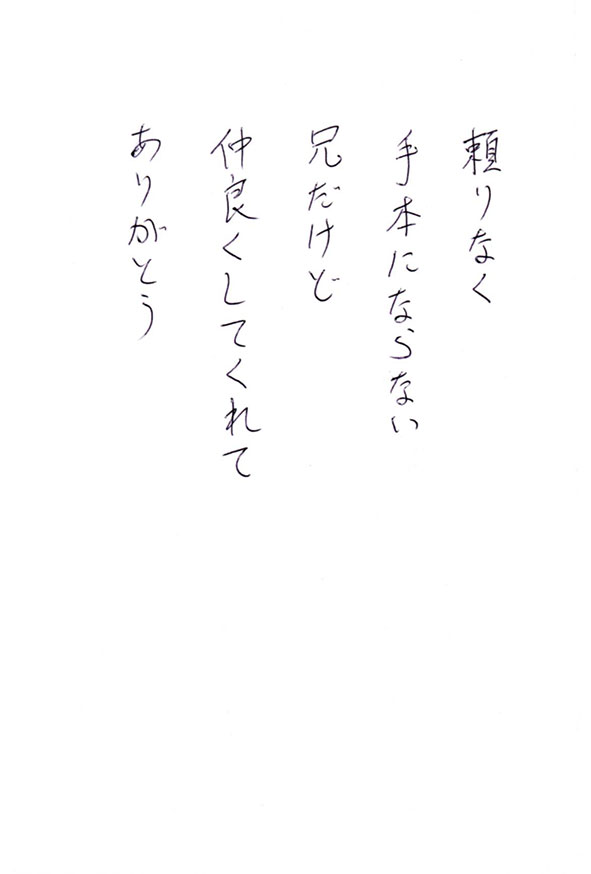 頼りなく
手本にならない
兄だけど
仲良くしてくれて
ありがとう